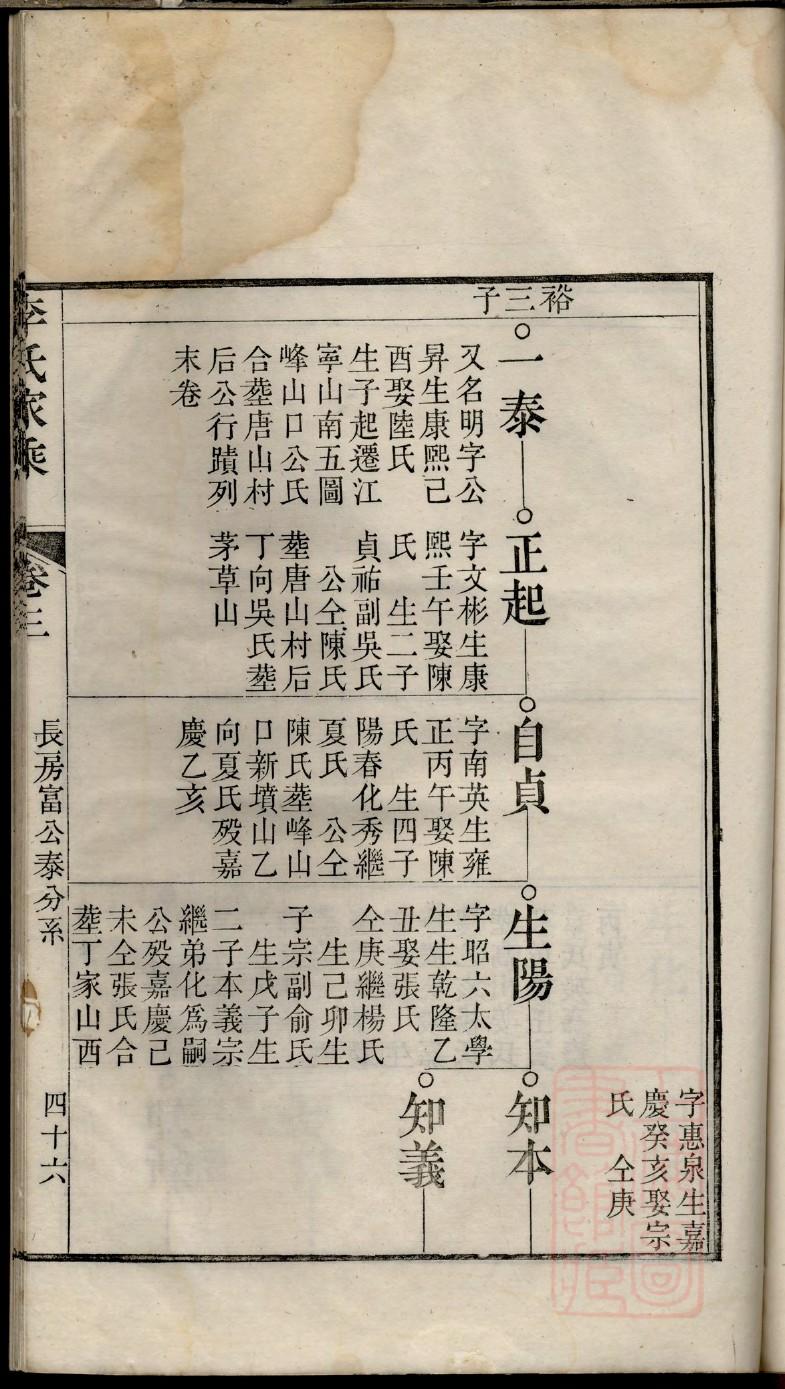 裕三子
一泰
又名明字公
昇生康熙己
酉娶陸氏
生子起遷江
寧山南五圖
峰山口公氏
合塟唐山村
后公行蹟列
末卷
正起
字文彬生康
熙壬午娶陳
氏　生二子
貞祐副吳氏
公仝陳氏
塟唐山村后
丁向吳氏塟
茅草山
自貞
字南英生雍
正丙午娶陳
氏　生四子
陽春化秀繼
夏氏　公仝
陳氏塟峰山
口新墳山乙
向夏氏殁嘉
慶乙亥
生陽
字昭六太學
生生乾隆乙
丑娶張氏
仝庚繼楊氏
生己卯生
子宗副俞氏
生戊子生
二子本義宗
繼弟化爲嗣
公殁嘉慶己
未仝張氏合
塟丁家山西
字惠泉生嘉
慶癸亥娶宗
氏　仝庚
知本
知義
李氏家乘
卷三
長房富公泰分系
四十六